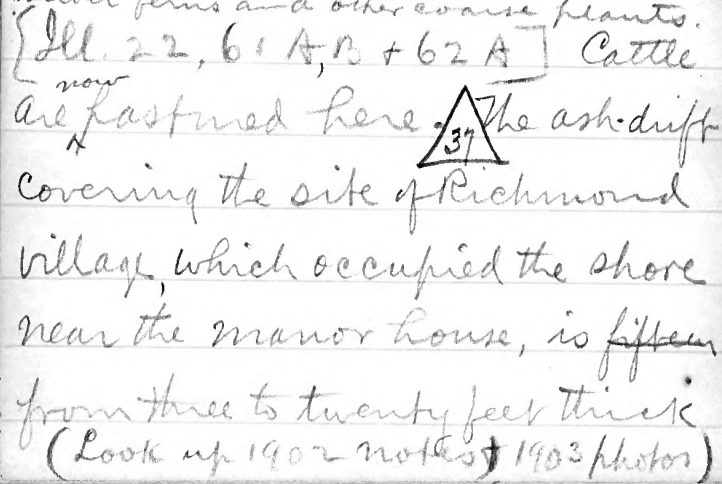 silver ferns and other coarse plants.
[Ill. 22, 61 A, B + 62 A] Cattle
are now pastured here. 37 The ash-drift
covering the site of Richmond
village, which occupied the shore
near the manor house, is fifteen
from three to twenty feet thick
(Look up 1902 notes + 1903 photos)